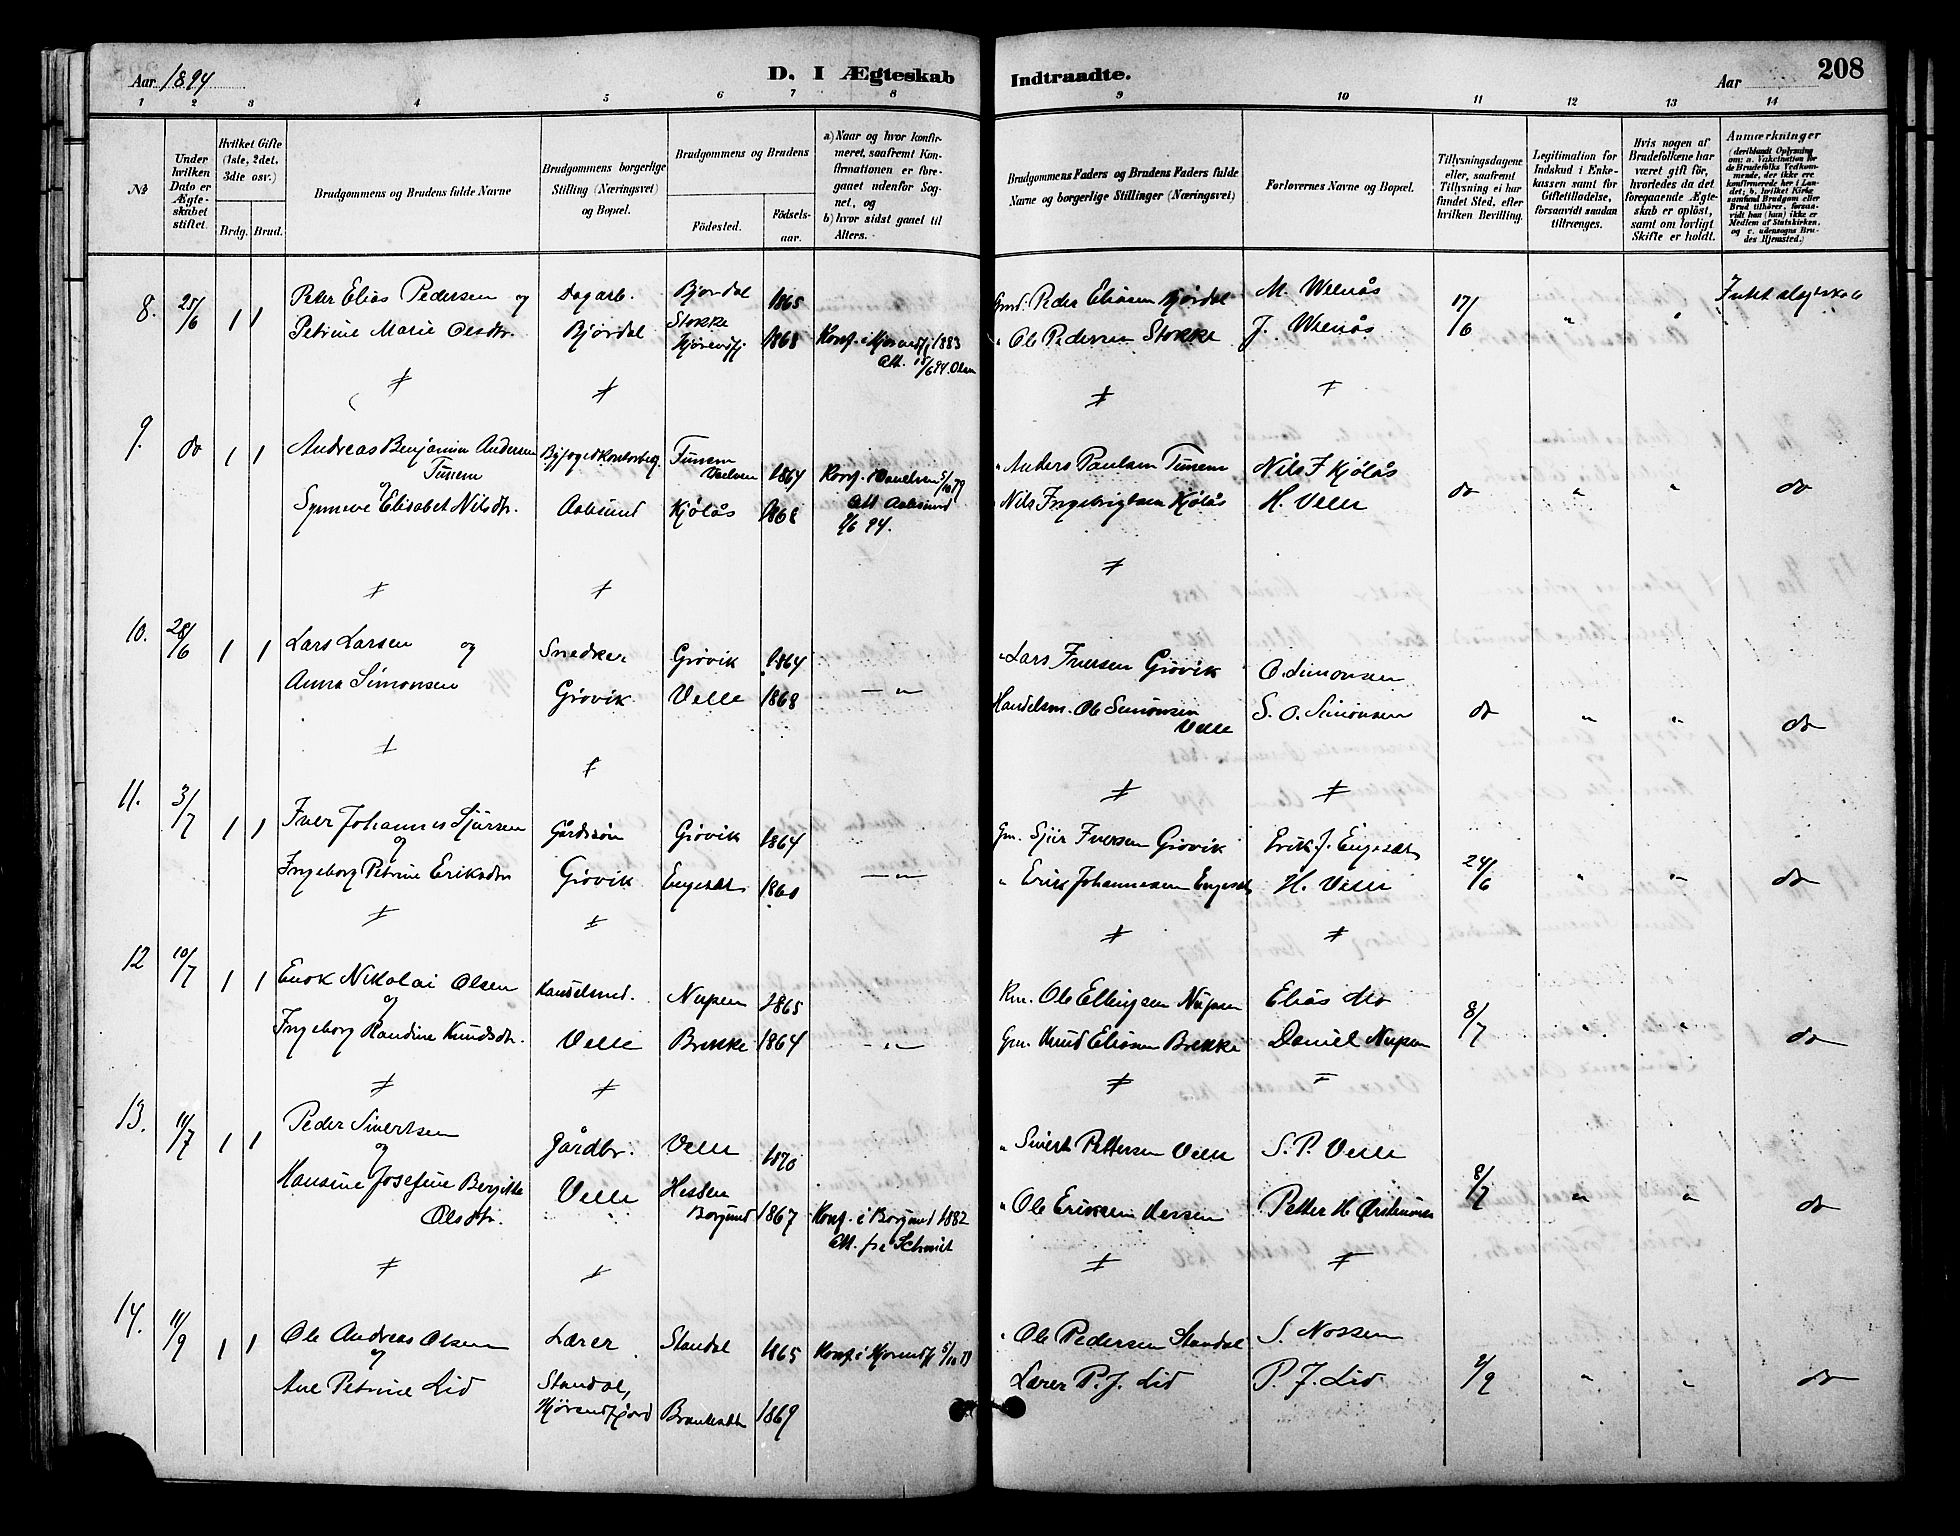 Aar 1894
D. I Ægteskab Indtraadte.
Aar
208
1 2 3 4 5 6 7 8 9 10 11 12 13 14
No
Under hvilken Dato er Ægteskabet stiftet.
Hvilket Gifte (1ste, 2det, 3die osv.)
Brdg. Brud.
Brudgommens og Brudens fulde Navne
Brudgommens borgerlige Stilling (Næringsvei) og Bopæl.
Brudgommens og Brudens
Födested.
Födselsaar.
a) Naar og hvor konfirmeret, saafremt Konfirmationen er foregaaet udenfor Sognet, og
b) hvor sidst gaaet til Alters.
Brudgommens Faders og Brudens Faders fulde Navne og borgerlige Stillinger (Næringsvei)
Forlovernes Navne og Bopæl.
Tillysningsdagene eller, saafremt Tillysning ei har fundet Sted, efter hvilken Bevilling.
Legitimation for Indskud i Enkekassen samt for Giftetilladelse, forsaavidt saadan tiltrænges.
Hvis nogen af Brudefolkene har været gift før, hvorledes da det foregaaende Ægteskab er opløst, samt om lovligt Skifte er holdt.
Anmærkninger
8. 25/6 1 1 Peter Elias Pedersen og Dagarb. Bjordal 1865 Gmd. Peder Eliasen Bjørdal M. Welnås 17/6 " "
Petrine Marie Olsdtr. Bjørdal Stokke Hjørendfj 1868 Konf. i Hjørendfj 1883 " Ole Pedersen Stokke J. Welnås
Att. 15/6 94. Olsen
9. do 1 1 Andreas Benjamin Andersen Tunem og 1864 " Anders Paulsen Tunem Nils I Kjølås do " " do
Synneve Elisabet Nilsdtr. Aalesund Kjølås 1868 Att Aalesund Nils Ingebrigtsen Kjølås H. Velle
94.
10. 28/6 1 1 Lars Larsen og Snedker Giøvik 1864 " Lars Iversen Giøvik O. Simonsen
Anna Simonsen Giøvik Velle 1868 — " Handelsm. Ole Simonsen Velle S. O. Simonsen do " " do
11. 3/7 1 1 Iver Johannes Sjursen og Gårdssøn Giøvik 1864 Gm. Sjur Iversen Giøvik Erik J. Engeset
Ingeborg Petrine Eriksdtr Giøvik Engeset 1860 — " " Erik Johannesen Engeset H. Velle 24/6 " " do
12 10/7 1 1 Enok Nikolai Olsen og Nupen 1865 Ole Ellingsen Nupen Elias Mo 8/7
Ingeborg Randine Knudsdtr. Velle Brekke 1864 — " Gm. Knud Eliasen Brekke Daniel Nupen " " do
13. 11/7 1 1 Peder Sivertsen og Gårdbr. Velle 1870 " Sivert Pettersen Velle S. P. Velle
Hansine Josefine Bergitte Olsdtr. Velle Hessen Borgund 1867 Konf. i Borgund 1882 " Ole Eriksen 8/7 " " do
Att. fra Schmidt
14. 11/9 1 1 Ole Andreas Olsen og Lærer Standal 1865 Konf. i Hjørendfj 5/10 79 " Ole Pedersen Standal S. Nossen
Ane Petrine Lid Standal, Hjørendfjord 1869 Lærer P. J. Lid P. J. Lid 2/9 " " do